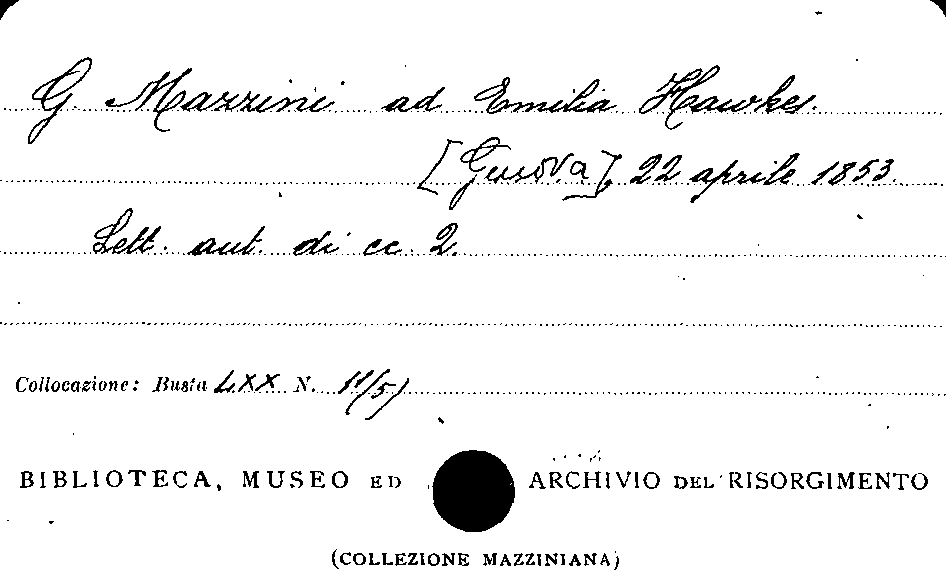 G. Mazzini ad Emilia Hawkes.
[Genova], 22 aprile 1853.
Lett. aut. di cc. 2.
Collocazione: Busta LXX N. 11/5)
BIBLIOTECA, MUSEO ED ARCHIVIO DEL RISORGIMENTO
(COLLEZIONE MAZZINIANA)